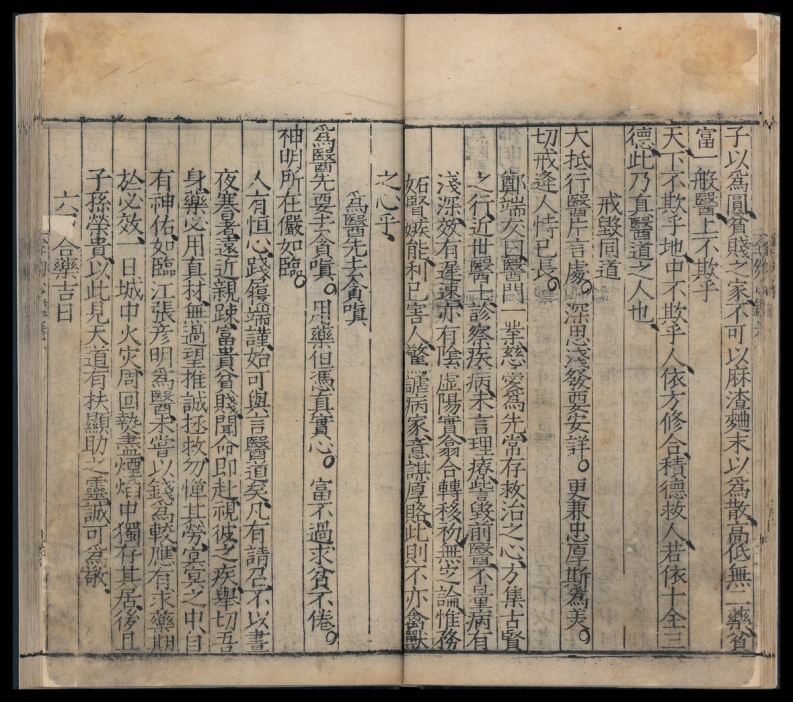 子以爲圓貧賤之家不可以麻渣麯末以爲散高低無二藥貧
富一般醫上不欺乎
天下不欺乎地中不欺乎人依方修合積德救人若依十全三
德此乃眞醫道之人也
戒毀同道
大抵行醫片言處。深思淺發要安詳。更兼忠厚斯爲美。
切戒逢人恃己長。
鄭端友曰醫門一業慈愛爲先常存救治之心方集古賢
之行近世醫士診察疾病未言理療訾毀前醫不量病有
淺深效有遲速亦有陰虛陽實翕合轉移初無定論惟務
妬賢嫉能利已害人驚謼病家意謀厚賂此則不亦禽獸
之心乎
爲醫先去貪嗔
爲醫先要去貪嗔。用藥但憑眞實心。富不過求貧不倦。
神明所在儼如臨。
人有恒心踐履端謹始可與言醫道矣凡有請召不以晝
夜寒暑遠近親踈富貴貧賤聞命即赴視彼之疾舉切吾
身藥必用直材無過望推誠拯救勿憚其勞冥冥之中自
有神佑如臨江張彦明爲醫未嘗以錢爲較應有求藥期
於必效一日城中火灾周回爇盡煙焰中獨存其居後且
子孫榮貴以此見天道有扶顯助之靈誠可爲敬
六 合藥吉日